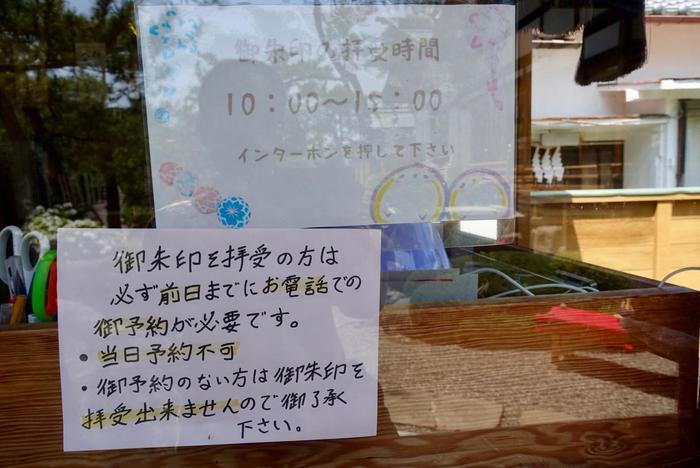 御朱印の拝受時間
10：00～12：00
インターホンを押して下さい
御朱印を拝受の方は
必ず前日までにお電話での
御予約が必要です。
・当日予約不可
・御予約のない方は御朱印を
拝受出来ませんので御了承
下さい。